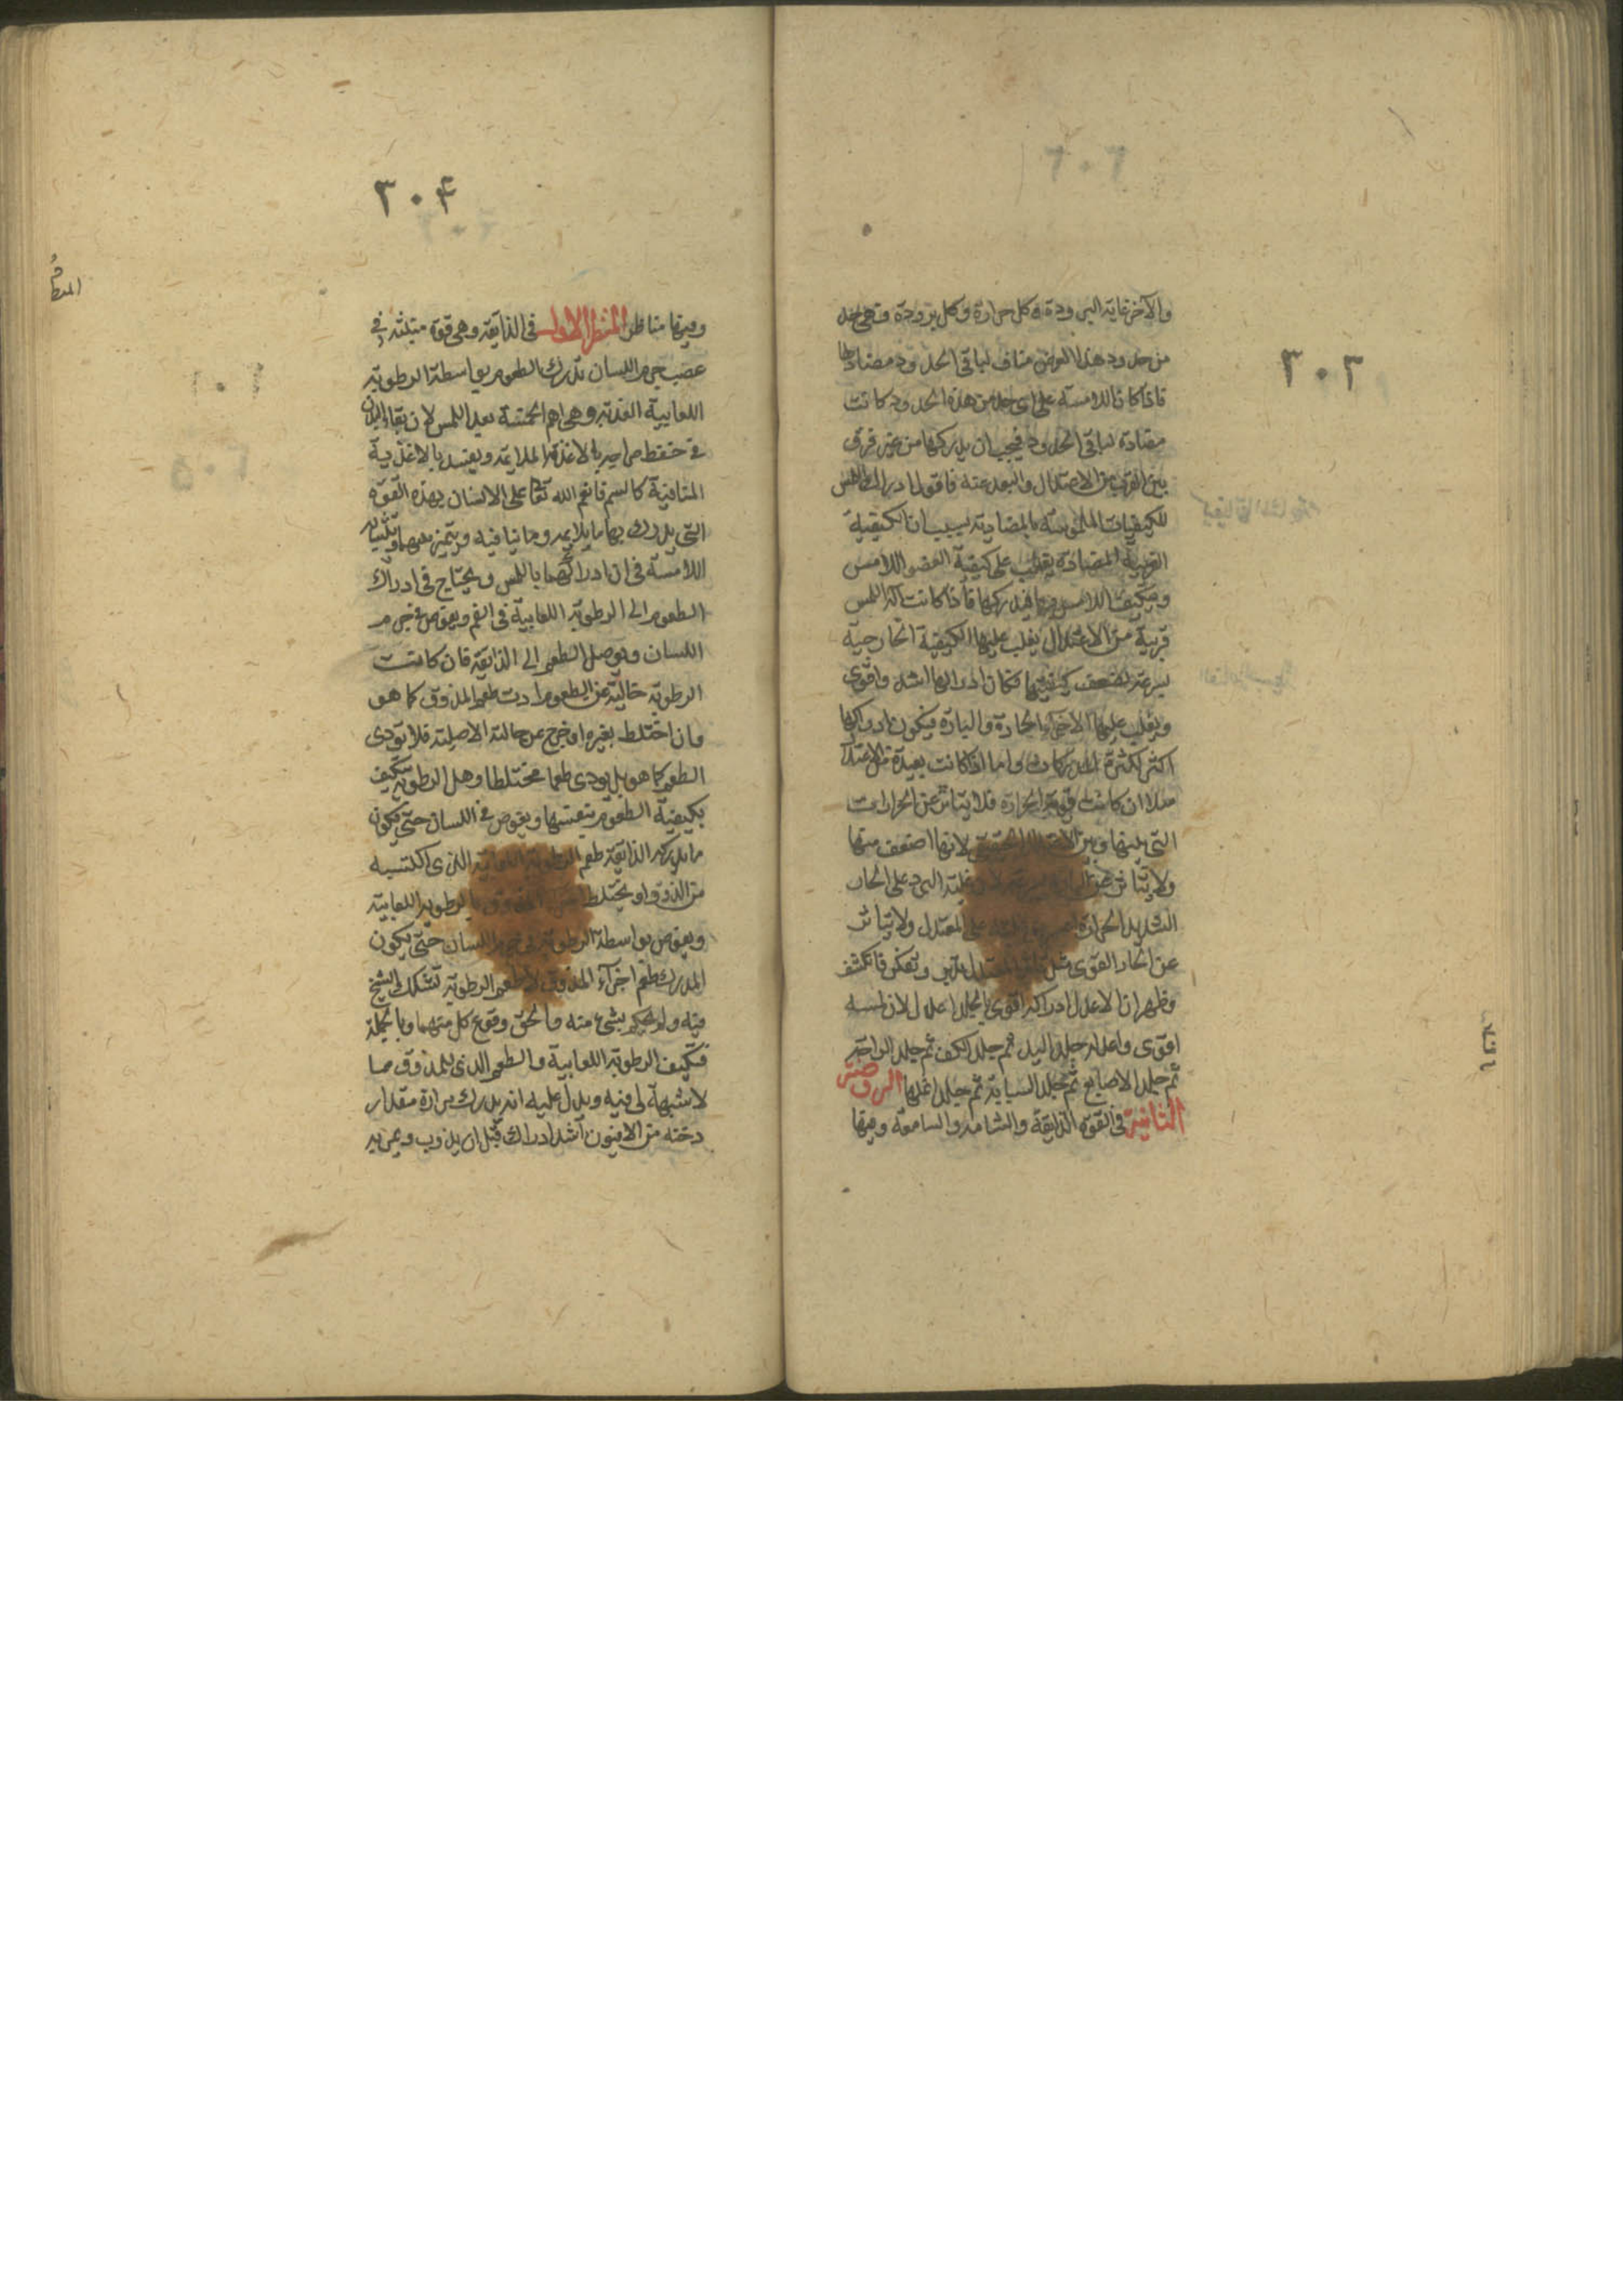 ٣٠٣
والآخر غاية البرودة وكل حرارة وكل برودة وهي حد
من حدود هذا العرض مناف لباقي الحدود مضاد لها
فاذا كان اللامسة على اى حد من هذه الحدود كانت
مضادة لباقي الحدود فيجب ان يدركها من غير فرق
بين القرب من الاعتدال والبعد عنه فاقول ادراك اللمس
للكيفيات الملموسة بالمضادة بسبب ان الكيفية
القريبة المضادة يغلب على كيفية العضو اللامس
ويتكيف اللامس بها فيدركها فاذا كانت آلة اللمس
قريبة من الاعتدال يغلب عليها الكيفية الخارجية
بسرعة لضعف كيفيتها فكان ادراكها اشد واقوى
ويغلب عليها الاجزاء الحارة والباردة فيكون ادراكها
اكثر لكثرة المدركات واما اذا كانت بعيدة من الاعتدال
مثلا ان كانت قوية الحرارة فلا يتاثر عن الحرارات
التي بينها وبين الاعتدال الحقيقي لانها اضعف منها
ولا يتاثر عن البارد بسرعة لان غلبة البرد على الحار
الشديد الحرارة اصعب من غلبته على المعتدل ولا يتاثر
عن الحار القوى مثل تاثر المعتدل فانكشف
وظهر ان الاعدل ادراكه اقوى والجلد اعدل لان لمسه
اقوى واعدله جلد اليد ثم جلد الكف ثم جلد الراحة
ثم جلد الاصابع ثم جلد السبابة ثم جلد انملها الروضة
الثانية في القوة الذايقة والشامة والسامعة وفيها
٣٠۴
وفيها مناظر المنظر الاول في الذايقة وهي قوة منبثة في
عصب جرم اللسان تدرك الطعوم بواسطة الرطوبة
اللعابية العذبة وهي اهم الخمسة بعد اللمس لان بقاء البدن
في حفظ مزاجه بالاغذية الملايمة ويفسد بالاغذية
المنافية كالسم فانعم الله تعالى على الانسان بهذه القوة
التي يدرك بها ما يلايمه وما ينافيه ويتميز بينهما وتشابه
اللامسة في ان ادراكهما باللمس ويحتاج في ادراك
الطعوم الى الرطوبة اللعابية في الفم ويغوص في جرم
اللسان ويوصل الطعم الى الذايقة فان كانت
الرطوبة خالية عن الطعوم ادت طعم المذوق كما هو
وان اختلط بغيره او خرج عن حالته الاصلية فلا تودى
الطعم كما هو بل يودى طعما مختلطا وهل الرطوبة يتكيف
بكيفية الطعوم بنفسها ويغوص في اللسان حتى يكون
ما يدركه الذايقة طعم الرطوبة اللعابية الذى اكتسبه
من الذوق او يختلط المذوق بالرطوبة اللعابية
ويغوص بواسطة الرطوبة في جرم اللسان حتى يكون
المدرك طعم اجزاء المذوق لا طعم الرطوبة تشكك الشيخ
فيه ولم يحكم بشىء منه والحق وقوع كل منهما وبالجملة
فتكيف الرطوبة اللعابية والطعم الذى للمذوق مما
لا شبهة لى فيه ويدل عليه انه يدرك مرارة مقدار
دخنه من الافيون اشد ادراك قبل ان يذوب ويمر به